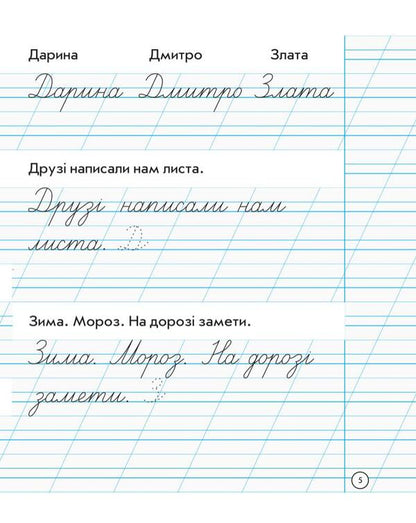 Дарина Дмитро Злата
Дарина Дмитро Злата
Друзі написали нам листа.
Друзі написали нам
листа. Д
Зима. Мороз. На дорозі замети.
Зима. Мороз. На дорозі
замети. З
5